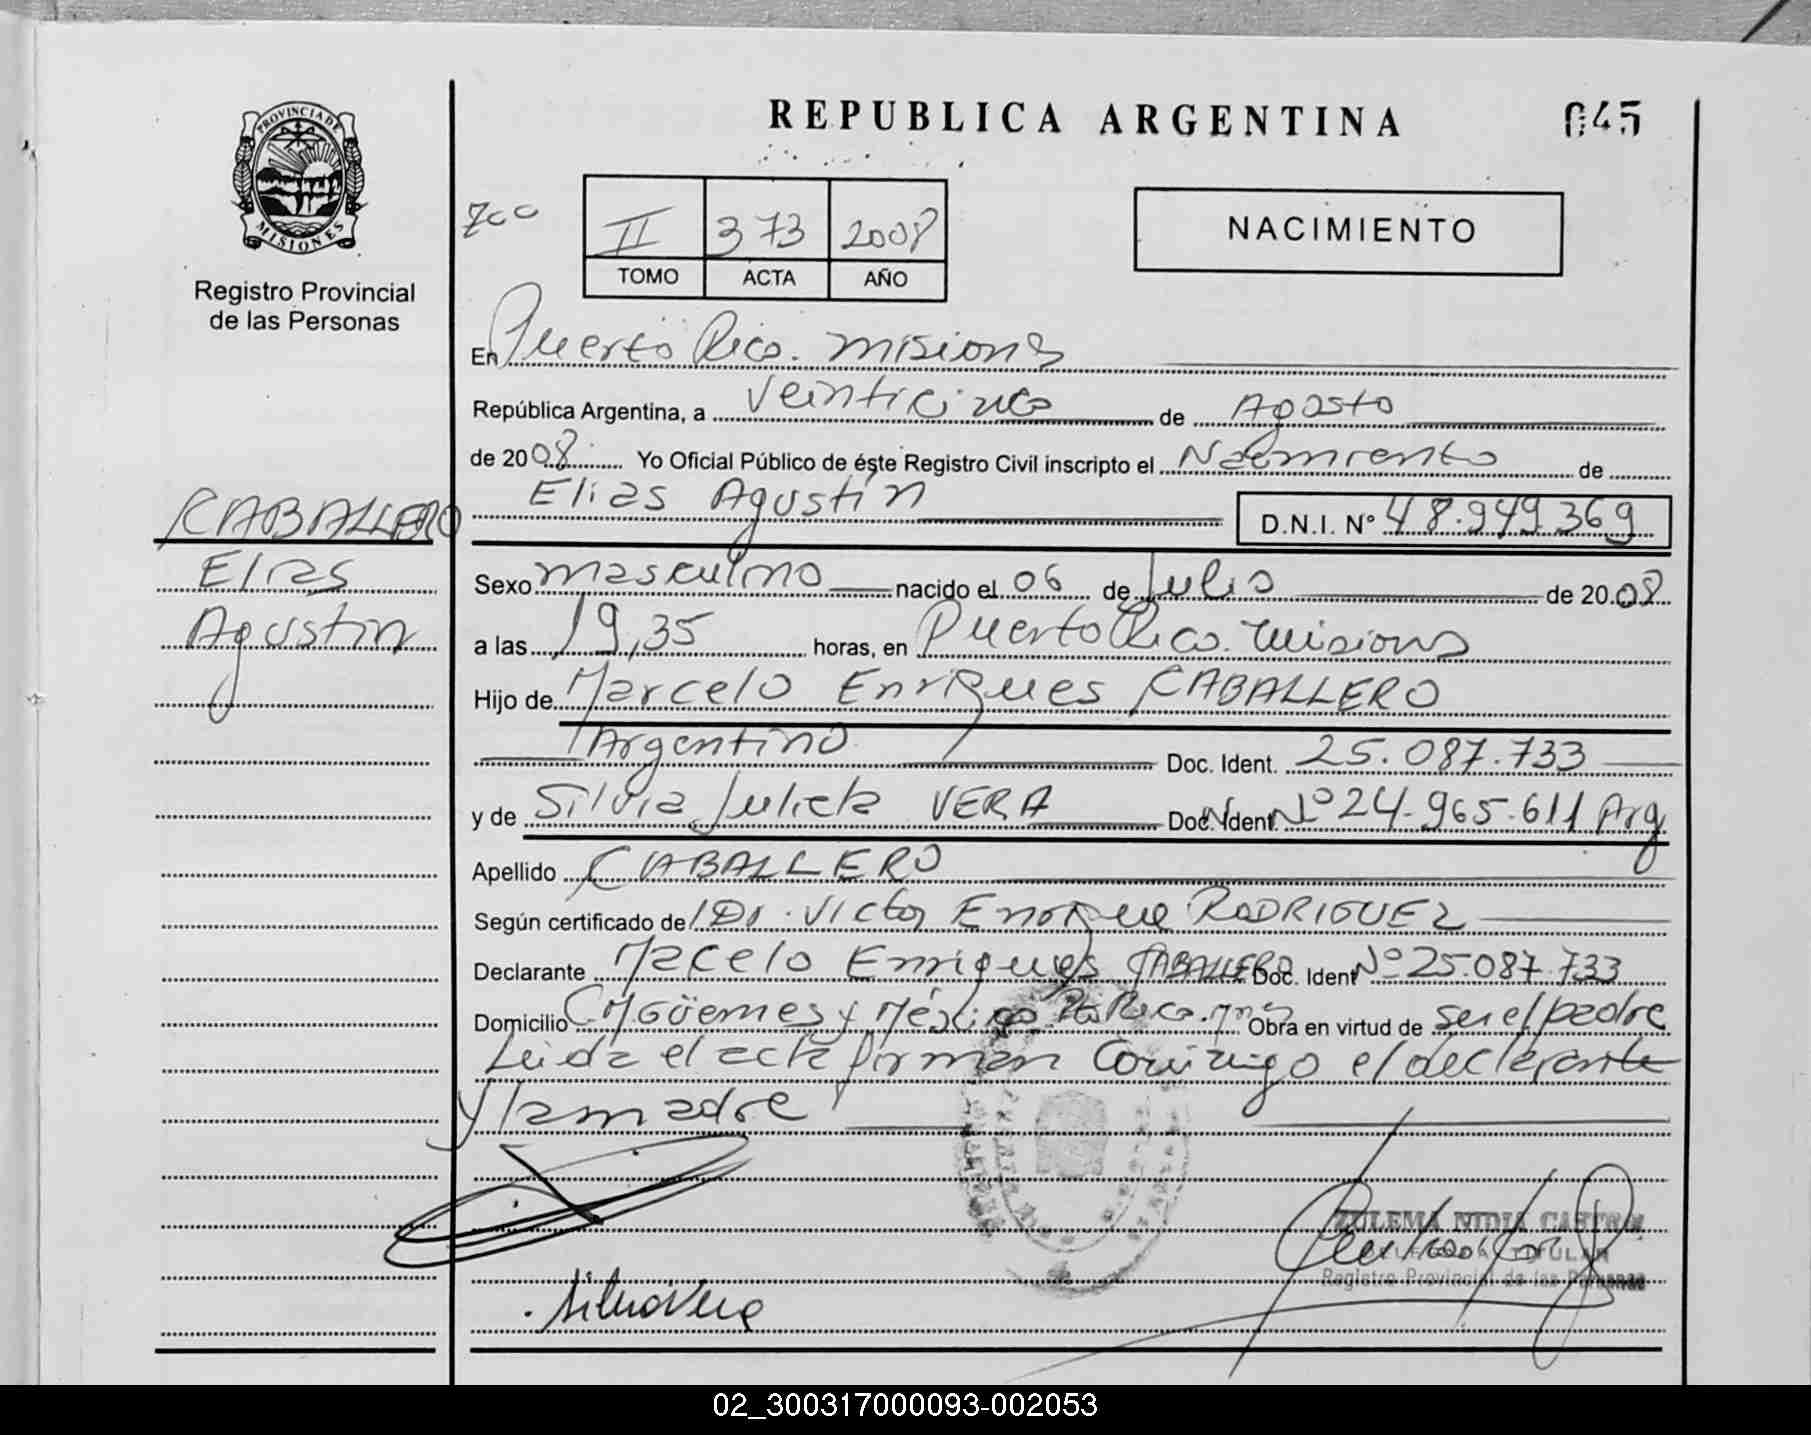 REPUBLICA ARGENTINA
045
PROVINCIA DE MISIONES
Registro Provincial
de las Personas
II 373 2008
TOMO ACTA AÑO
NACIMIENTO
En Puerto Rico. Misiones
República Argentina, a Veinticinco de Agosto
de 2008. Yo Oficial Público de éste Registro Civil inscripto el Nacimiento de
Elias Agustín D.N.I. Nº 48.949.369
CABALLERO
Elias
Agustin
Sexo masculino nacido el 06 de Julio de 2008
a las 19,35 horas, en Puerto Rico. Misiones
Hijo de Marcelo Enriques CABALLERO
Argentino Doc. Ident. 25.087.733
y de Silvia Julieta VERA Doc. Ident. Nº 24.965.611 Arg
Apellido CABALLERO
Según certificado de Dr. Victor Enrique RODRIGUEZ
Declarante Marcelo Enriques CABALLERO Doc. Ident Nº 25.087.733
Domicilio Güemes y México Pto Rico. Mnes Obra en virtud de ser el padre
Leida el acta firman Conmigo el declarante
y la madre
ZULEMA NIDIA CASTRO
DELEGADA TITULAR
Registro Provincial de las Personas
Silvia Vera
02_300317000093-002053